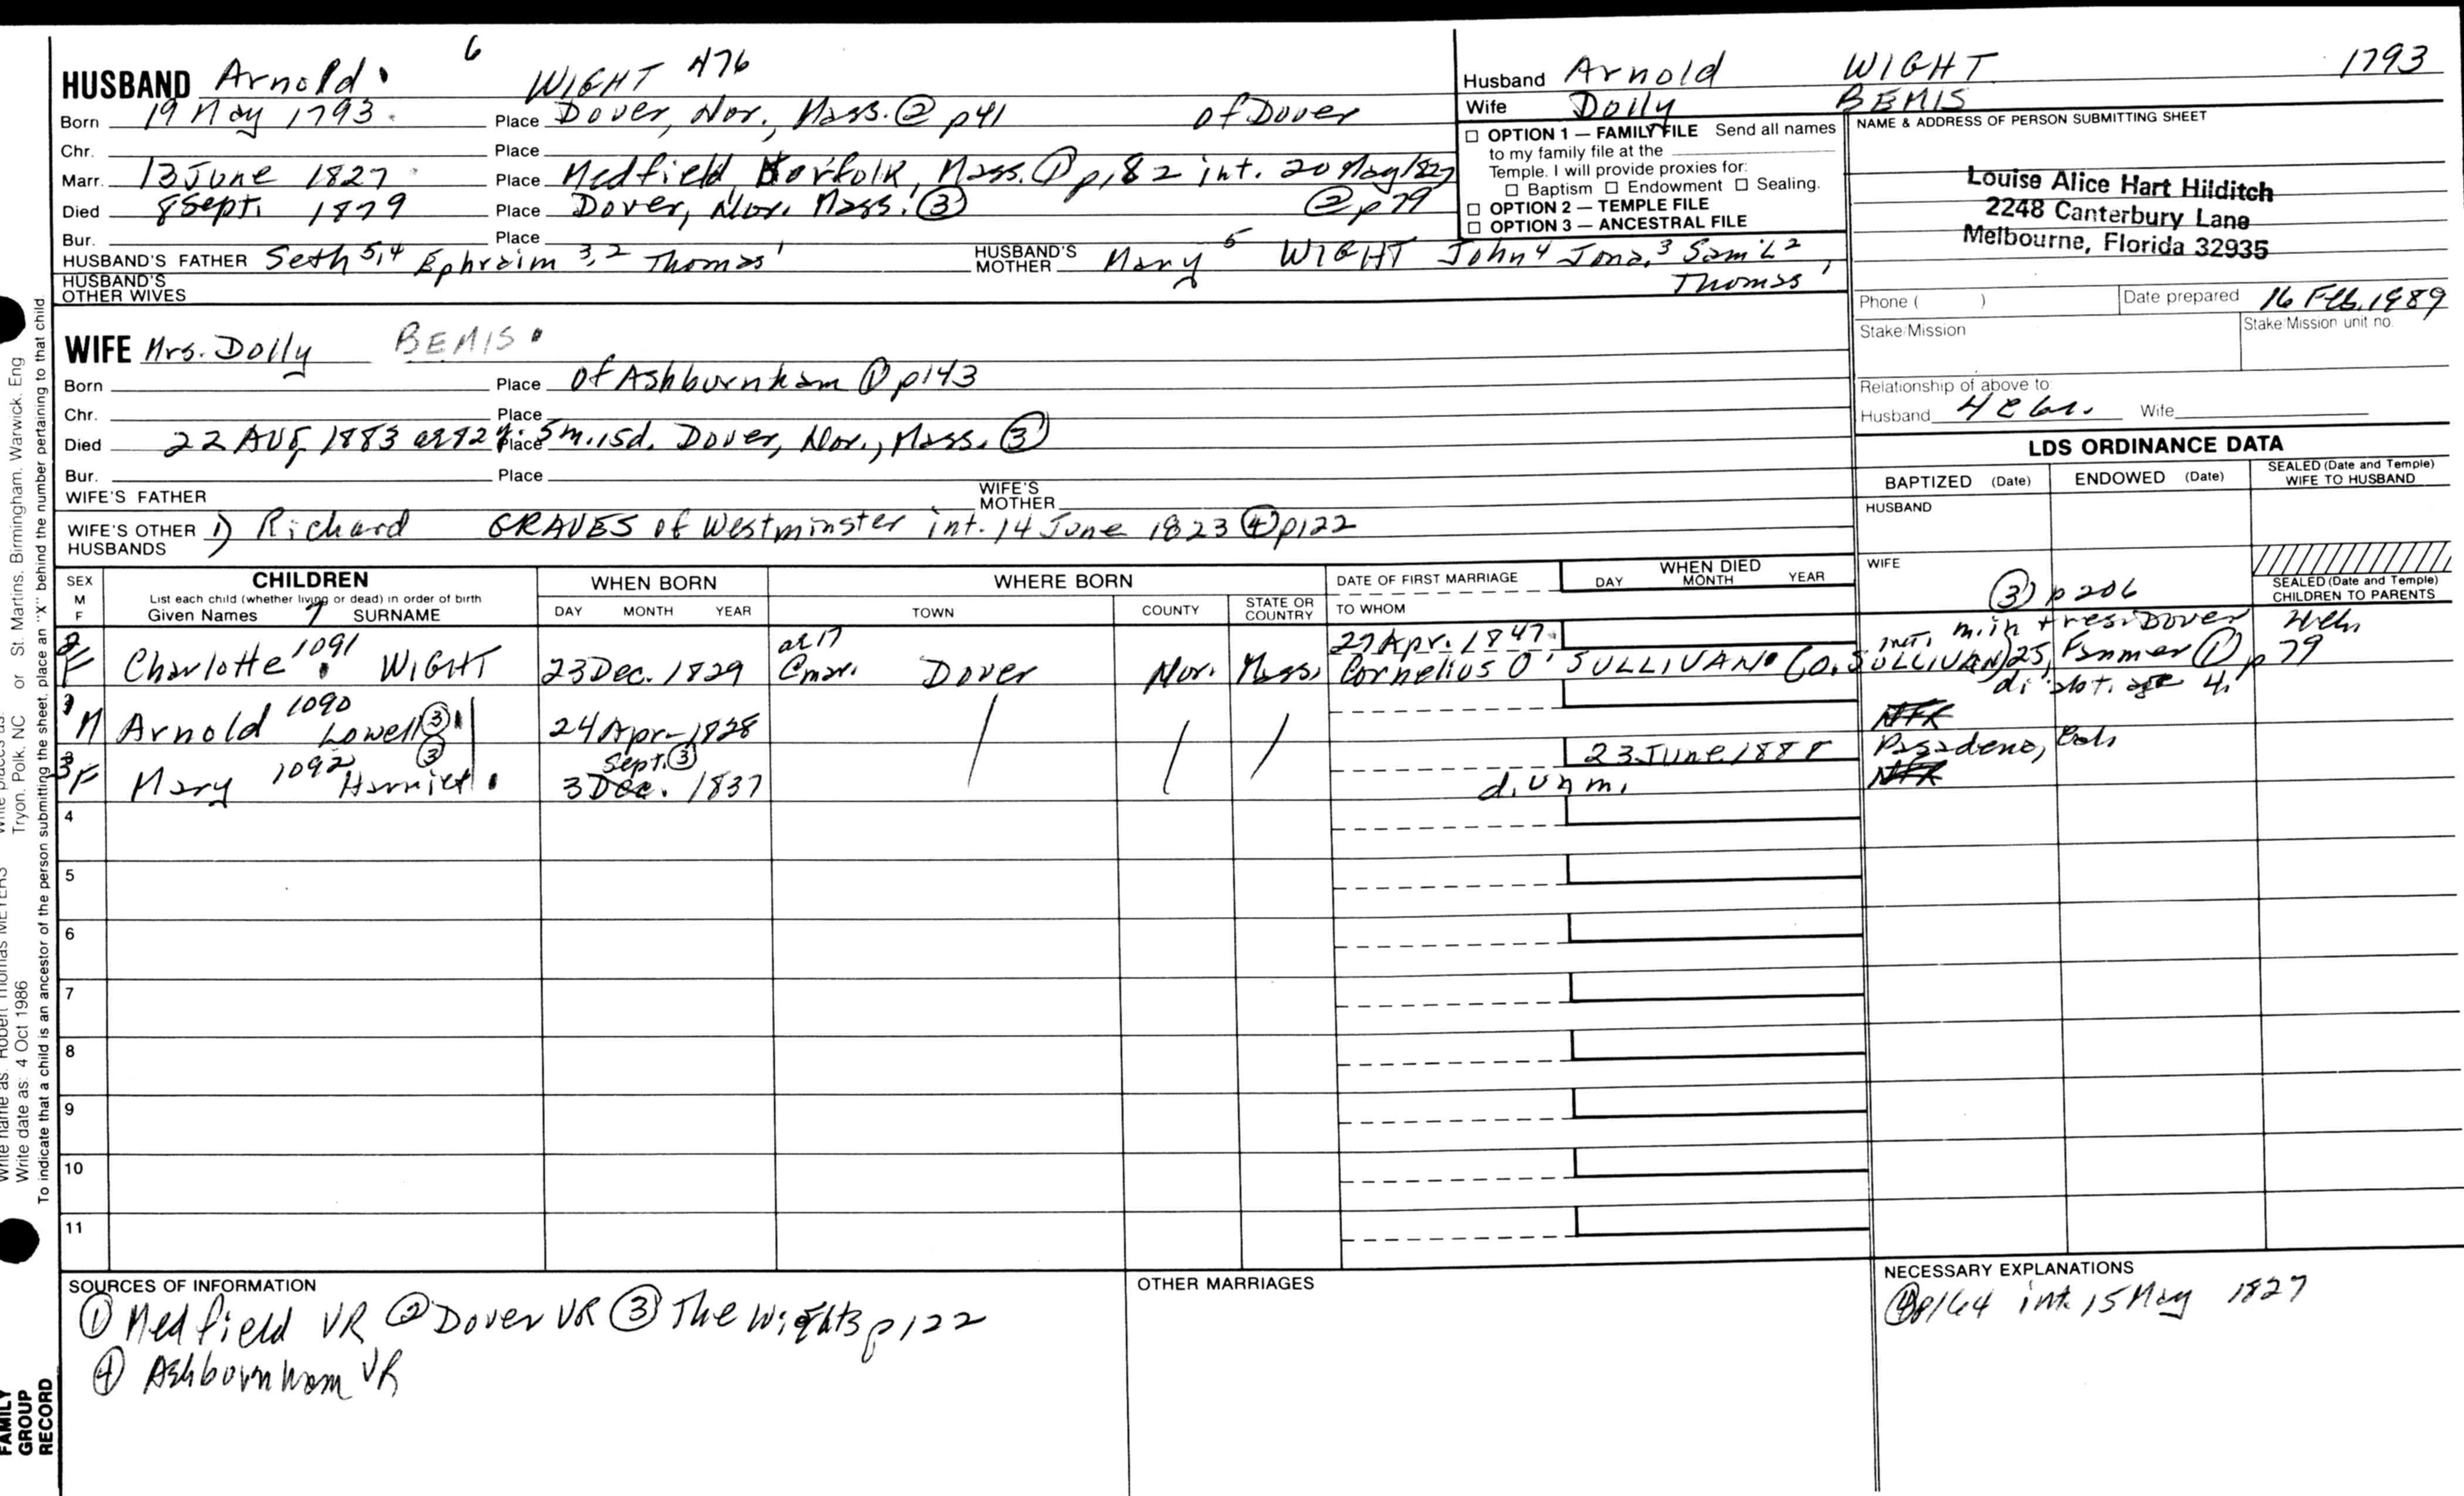 HUSBAND Arnold 6 WIGHT 476
Born 19 May 1793 Place Dover, Nor., Mass. ② p41 of Dover
Chr. Place
Marr. 13 June 1827 Place Medfield Norfolk, Mass. ① p,82 int. 20 May 1827
Died 8 Sept. 1879 Place Dover, Nor. Mass. ③ ② p79
Bur. Place
HUSBAND'S FATHER Seth 5,4 Ephraim 3,2 Thomas 1 HUSBAND'S MOTHER Mary 5 WIGHT John 4 Jona, 3 Sam'l 2 Thomas 1
HUSBAND'S OTHER WIVES
Husband Arnold WIGHT 1793
Wife Dolly BEMIS
☐ OPTION 1 — FAMILY FILE Send all names
to my family file at the
Temple. I will provide proxies for:
☐ Baptism ☐ Endowment ☐ Sealing.
☐ OPTION 2 — TEMPLE FILE
☐ OPTION 3 — ANCESTRAL FILE
NAME & ADDRESS OF PERSON SUBMITTING SHEET
Louise Alice Hart Hilditch
2248 Canterbury Lane
Melbourne, Florida 32935
Phone ( ) Date prepared 16 Feb. 1989
Stake/Mission Stake/Mission unit no.
Relationship of above to
Husband Wife
WIFE Mrs. Dolly BEMIS
Born Place of Ashburnham ① p143
Chr. Place
Died 22 AUG 1883 ae 82 y. Place 5m. 15d. Dover, Nor., Mass. ③
Bur. Place
WIFE'S FATHER WIFE'S MOTHER
WIFE'S OTHER HUSBANDS 1) Richard GRAVES of Westminster int. 14 June 1823 ④ p122
LDS ORDINANCE DATA
BAPTIZED (Date) ENDOWED (Date) SEALED (Date and Temple) WIFE TO HUSBAND
HUSBAND
WIFE
SEALED (Date and Temple) CHILDREN TO PARENTS
SEX M F
CHILDREN
List each child (whether living or dead) in order of birth
Given Names 7 SURNAME
WHEN BORN
DAY MONTH YEAR
WHERE BORN
TOWN COUNTY STATE OR COUNTRY
DATE OF FIRST MARRIAGE
TO WHOM
WHEN DIED
DAY MONTH YEAR
③ p206
int. min + res. Dover
2 F Charlotte 1091 WIGHT 23 Dec. 1829 ae 17 Dover Nor. Mass. 27 Apr. 1847
Cornelius O'SULLIVAN (O.SULLIVAN) 25, Farmer ① p 79
M Arnold 1090 Lowell ③ 24 Apr 1828 / / /
NFR
3 F Mary 1092 Harriet ③ Sept. ③ 3 Dec. 1837 d. unm. 23 June 1888 Pasadena, Cal.
NFR
4
5
6
7
8
9
10
11
SOURCES OF INFORMATION
① Medfield VR ② Dover VR ③ The Wights p122
④ Ashburnham VR
OTHER MARRIAGES
NECESSARY EXPLANATIONS
④ p164 int. 15 May 1827
Tryon, Polk, NC or St. Martins, Birmingham, Warwick, Eng
Write name as: Robert Thomas MEYERS
Write date as: 4 Oct 1986
To indicate that a child is an ancestor of the person submitting the sheet, place an "X" behind the number pertaining to that child
FAMILY
GROUP
RECORD